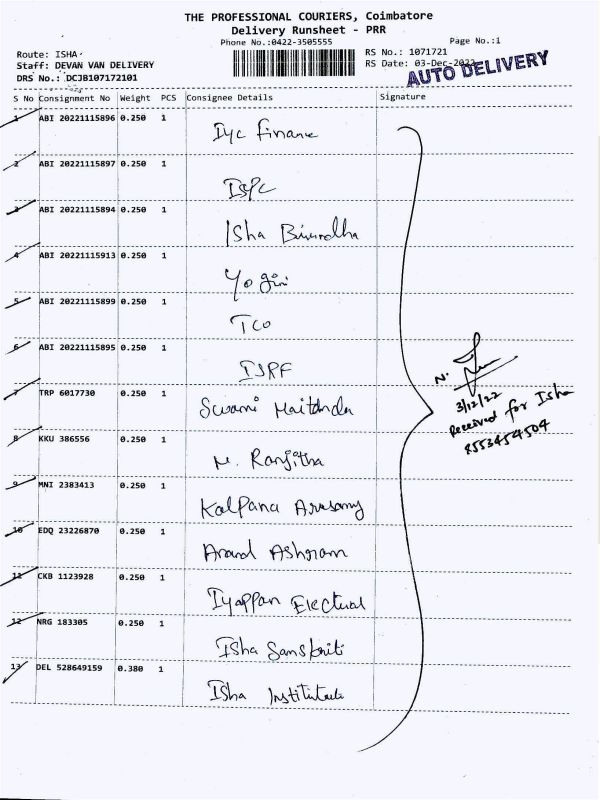 THE PROFESSIONAL COURIERS, Coimbatore
Delivery Runsheet - PRR
Phone No.:0422-3505555 Page No.:1
Route: ISHA RS No.: 1071721
Staff: DEVAN VAN DELIVERY RS Date: 03-Dec-2022
DRS No.: DCJB107172101 AUTO DELIVERY
S No Consignment No Weight PCS Consignee Details Signature
1 ABI 20221115896 0.250 1 Iyc Finance
2 ABI 20221115897 0.250 1 ISPC
3 ABI 20221115894 0.250 1 Isha
4 ABI 20221115913 0.250 1 Yogini
5 ABI 20221115899 0.250 1 TCO
6 ABI 20221115895 0.250 1 ISRF
7 TRP 6017730 0.250 1 Swami
8 KKU 386556 0.250 1 M. Ranjitha
9 MNI 2383413 0.250 1 Kalpana
10 EDQ 23226870 0.250 1 Anand Ashram
11 CKB 1123928 0.250 1 Iyappan
12 NRG 183305 0.250 1 Isha Sanskriti
13 DEL 528649159 0.380 1 Isha
N.
3/12/22
Received for Isha
8553454504